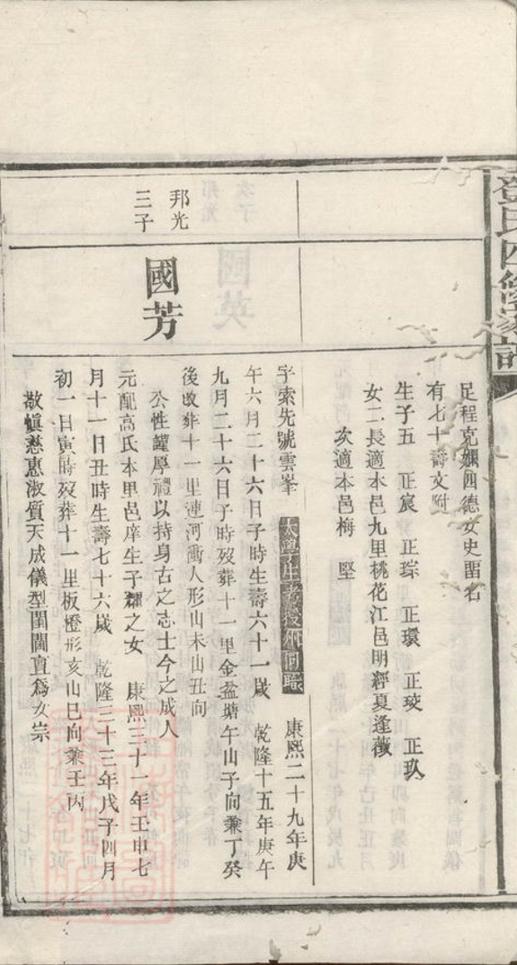 鄧氏四修家譜
足程克嫻四德女史留名
有七十壽文附
生子五 正宸 正琮 正環 正珓 正玖
女二長適本邑九里桃花江邑明經夏逢薇
次適本邑梅 堅
邦光
三子
國芳
字索先號雲峯 太學生考授州同職 康熙二十九年庚
午六月二十六日子時生壽六十一歲 乾隆十五年庚午
九月二十六日子時歿葬十一里金盆塘午山子向兼丁癸
後改葬十一里連河衝人形山未山丑向
公性謹厚禮以持身古之志士今之成人
元配高氏本里邑庠生子耀之女 康熙三十一年壬申七
月十一日丑時生壽七十六歲 乾隆三十三年戊子四月
初一日寅時歿葬十一里板橙形亥山巳向兼壬丙
敬慎慈惠淑質天成儀型閨閫直為女宗